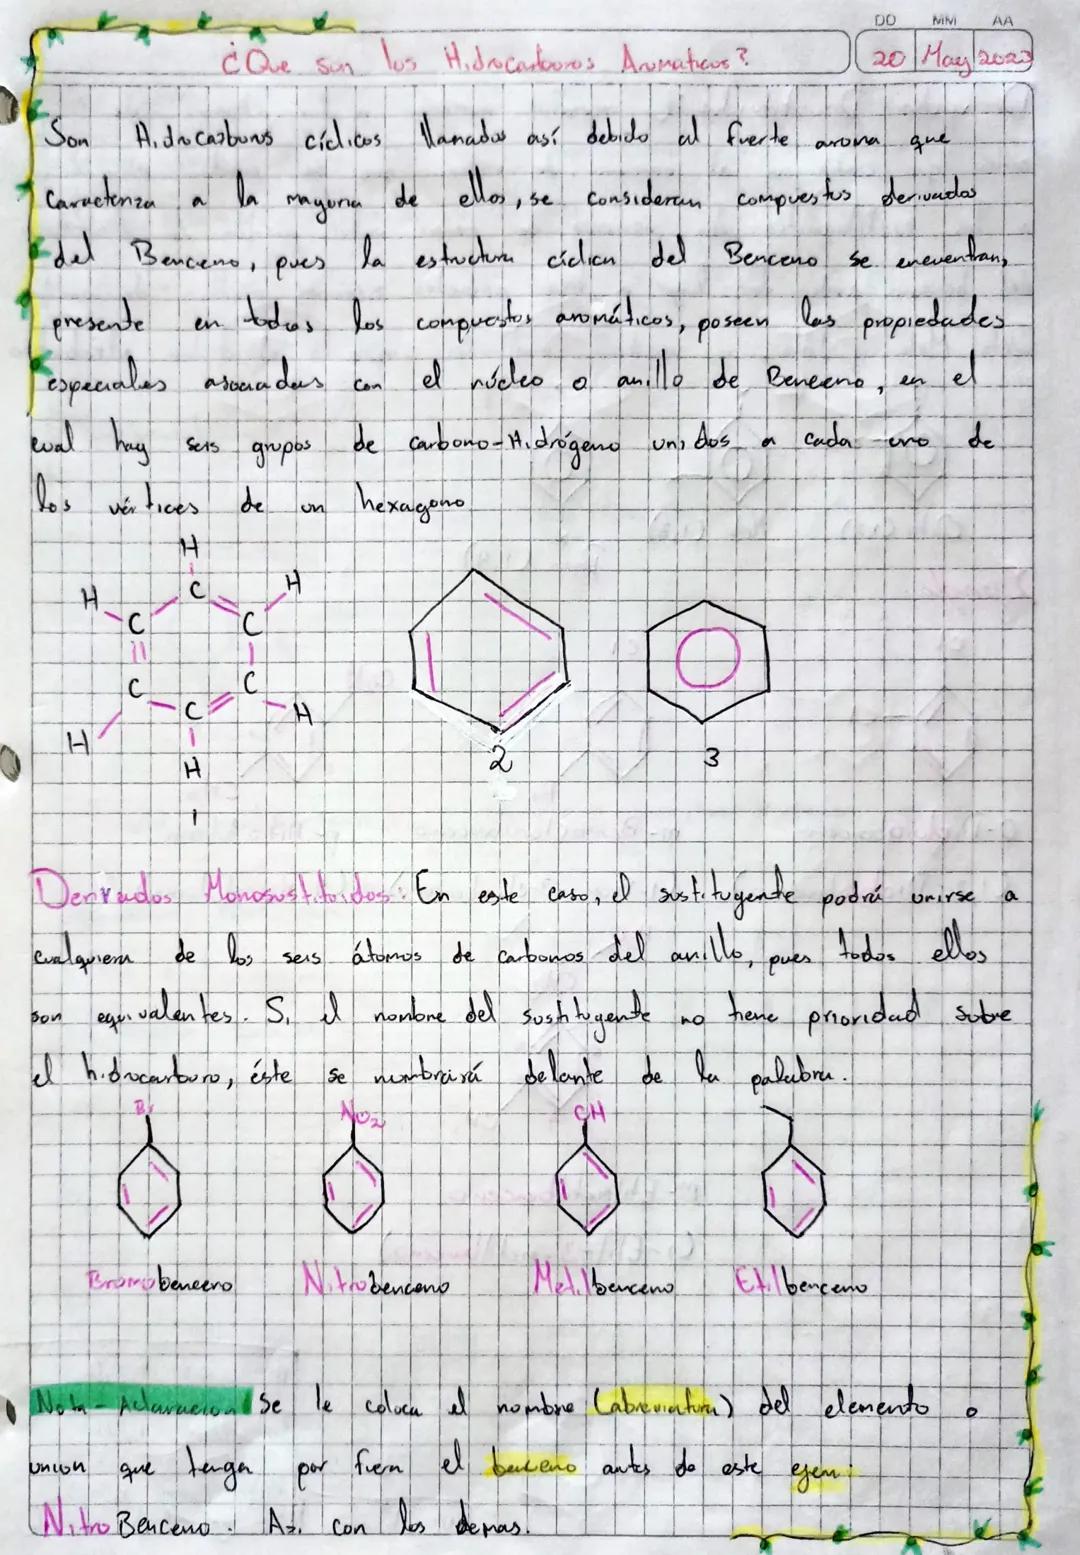 DD MM AA
¿Que son los Hidrocarburos Aromaticos? 20 May 2023
Son Hidrocarburos cíclicos llamados así debido al fuerte aroma que
Caracteriza a la mayoria de ellos, se consideran compuestos derivados
del Benceno, pues la estructura cíclica del Benceno se encuentran,
presente en todos los compuestos aromáticos, poseen las propiedades
especiales asociadas con el núcleo o anillo de Benceno, en el
cual hay seis grupos de carbono-Hidrógeno unidos a cada uno de
los vértices de un hexagono
H
H C H
C C
C C
H C H
H
1 2 3
Derivados Monosustituidos: En este caso, el sustituyente podrá unirse a
cualquiera de los seis átomos de carbonos del anillo, pues todos ellos
son equivalentes. Si el nombre del sustituyente no tiene prioridad sobre
el hidrocarburo, éste se nombrará delante de la palabra.
Br NO2 CH
Bromobenceno Nitrobenceno Metilbenceno Etilbenceno
Nota-Aclaracion Se le coloca el nombre (abreviatura) del elemento o
union que tenga por fuera el benceno antes de este ejem:
NitroBenceno. Asi con los demas.